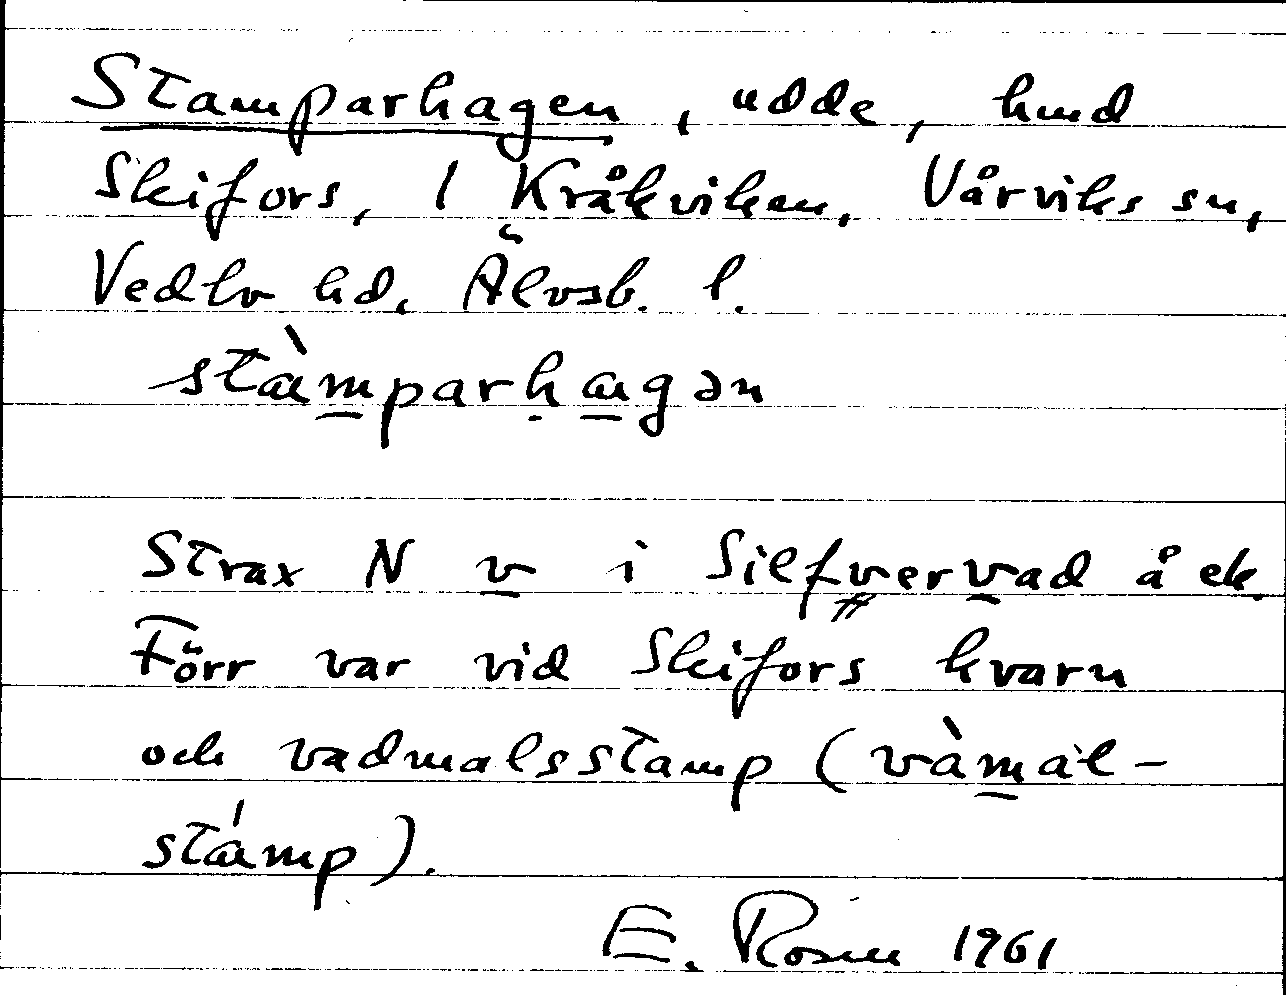 Stamparhagen, udde, hmd
Skifors, 1 Kråkviken, Vårviks sn,
Vedbo hd, Älvsb. l.
stàmparhagən
Strax N v i Silfvervad å ek.
Förr var vid Skifors kvarn
och vadmalsstamp (vàmal-
stámp).
E. Rosén 1961